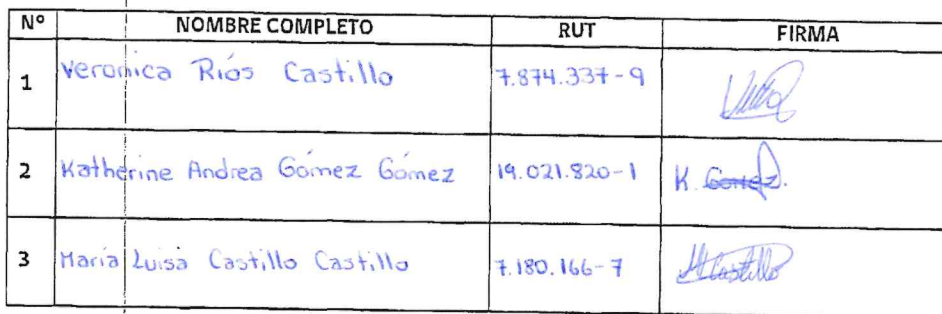 N° NOMBRE COMPLETO RUT FIRMA
1 Veronica Ríos Castillo 7.874.337-9
2 Katherine Andrea Gómez Gómez 19.021.820-1 K. Gomez.
3 María Luisa Castillo Castillo 7.180.166-7 MCastillo